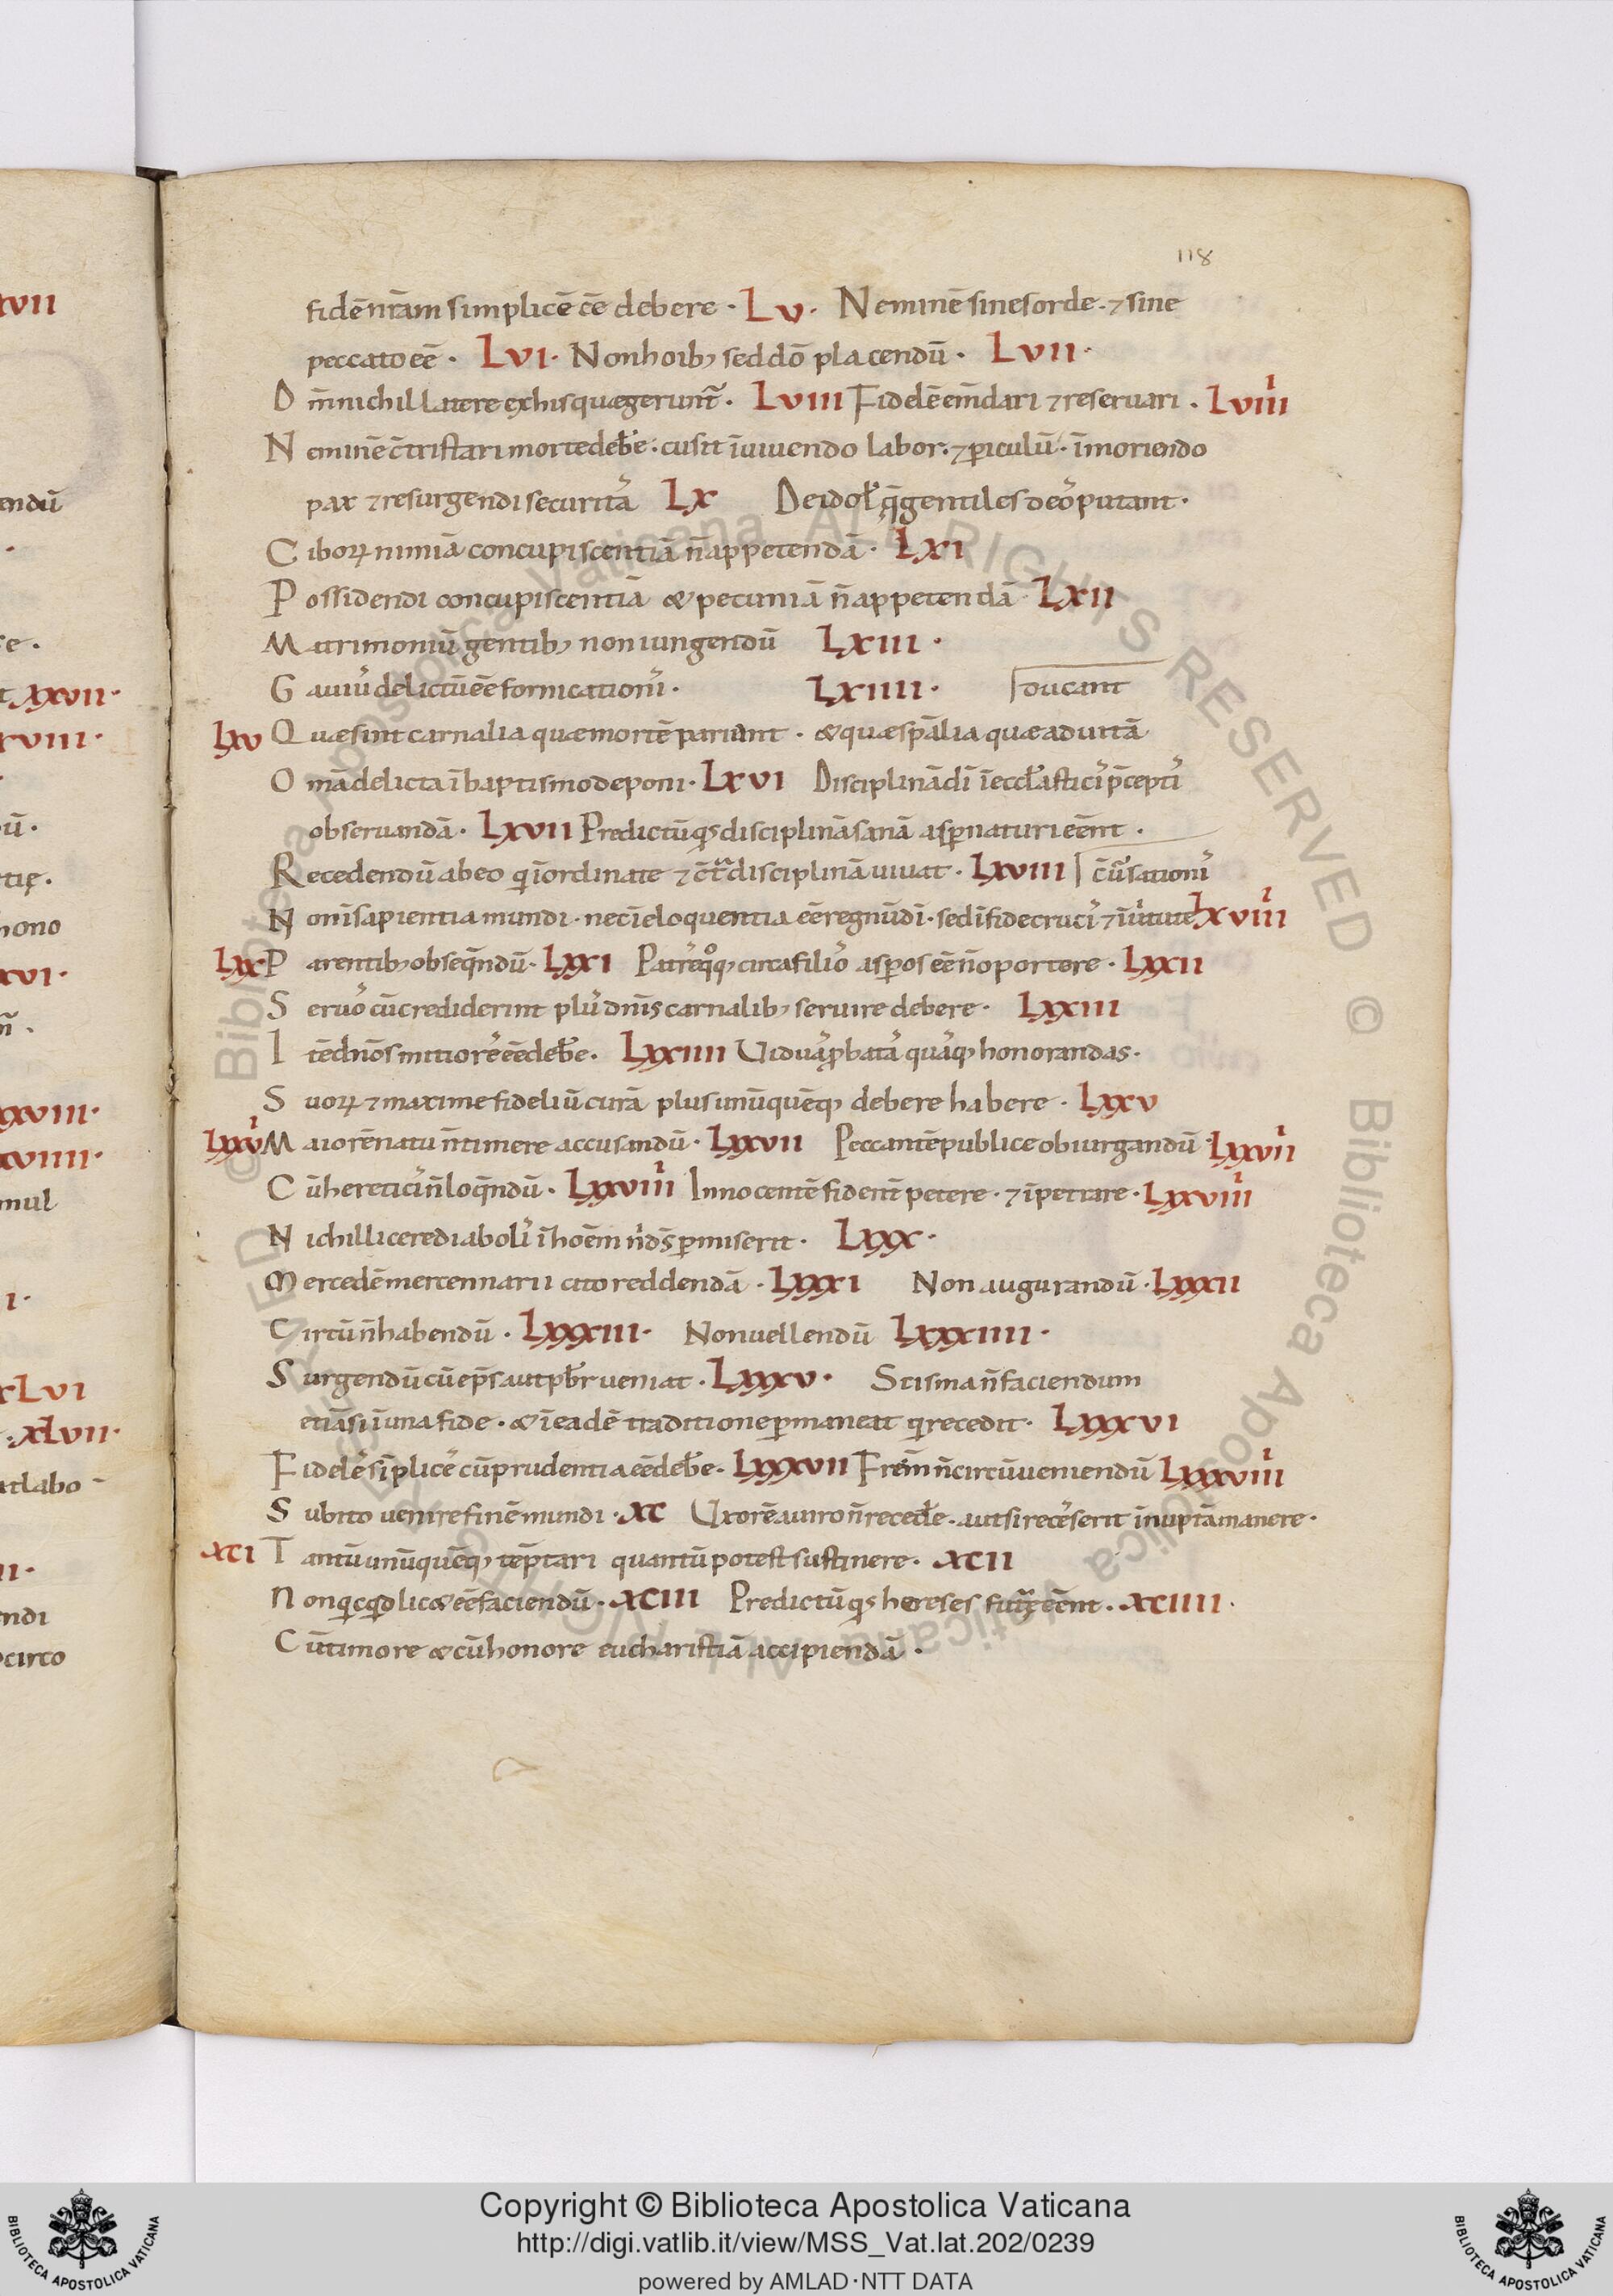 118
fidē nr̄am simplicē eē debere · Lv · Neminē sine sorde · ⁊ sine
peccato eē · Lvi · Non hoib; sed dō placendū · Lvii ·
Dm̄ nichil latere ex his quæ gerunt̄ · Lviii Fidelē em̄dari ⁊ reseruari · Lviiii
Neminē c̄tristari morte deb̄e · cu sit ī uiuendo labor · ⁊ p̄iculū · ī moriendo
pax ⁊ resurgendi securitā Lx De idol̄ q̄ gentiles deo᷒ putant ·
Ciboꝝ nimiā concupiscentiā n̄ appetendā · Lxi
Possidendi concupiscentiā & pecuniā n̄ appetendā Lxii
Matrimoniū gentib; non iungendū Lxiii ·
Gauiu᷒ delictū eē fornicationi᷒ · Lxiiii · ducant
Lxv Quæ sint carnalia quæ mortē pariant · & quæ spālia quæ ad uitā
Om̄a delicta ī baptismo deponi · Lxvi Disciplinā dī ī eccl̄astici᷒ p̄cepti᷒
obseruandā · Lxvii Predictū q᷒ disciplinā sanā aspnaturi eēnt ·
Recedendū ab eo qi īordinate ⁊ c̄tra disciplinā uiuat · Lxviii c̄uersationi᷒
Non ī sapientia mundi · nec ī eloquentia eē regnū dī · sed ī fide cruci᷒ ⁊ ī uirtute Lxviiii
Lxx Parentib; obseq̄ndū · Lxxi Patre᷒ q°q; circa filio᷒ aspos eē n̄ oportere · Lxxii
Seruo᷒ cū crediderint plu᷒ dn̄is carnalib; seruire debere · Lxxiii
Itē dn̄os mitiore᷒ eē deb̄e · Lxxiiii Uidua᷒ pbata᷒ qua᷒q; honorandas ·
Suoꝝ ⁊ maxime fideliū curā plus unūquēq; debere habere · Lxxv
Lxxvi Maiorē natu n̄ timere accusandū · Lxxvii Peccantē publice obiurgandū Lxxvii
Cū heretici᷒ n̄ loq̄ndū · Lxxviiii Innocentē fident̄ petere · ⁊ īpetrare · Lxxviiii
Nichil licere diaboli᷒ ī hoēm ni ds̄ pmiserit · Lxxx ·
Mercedē mercennarii cito reddendā · Lxxxi Non augurandū · Lxxxii
Circū n̄ habendū · Lxxxiii · Non uellendū Lxxxiiii ·
Surgendū cū ep̄s aut pb̄r ueniat · Lxxxv · Scisma n̄ faciendum
etiā si ī una fide · & ī eadē traditione pmaneat qi recedit · Lxxxvi
Fidele᷒ sīplice᷒ cū prudentia eē deb̄e · Lxxxvii Frem̄ n̄ circūueniendū Lxxxviiii
Subito uenire finē mundi · xc Uxorē a uiro n̄ recede̅ · aut si rece᷒serit īnuptā manere ·
xci Tantū unūquēq; tēptari quantū potest sustinere · xcii
Non qicqd licæ eē faciendū · xciii Predictū q᷒ hereses futuræ eēnt · xciiii ·
Cū timore & cū honore eucharistiā accipiendā ·
Copyright © Biblioteca Apostolica Vaticana
http://digi.vatlib.it/view/MSS_Vat.lat.202/0239
powered by AMLAD·NTT DATA